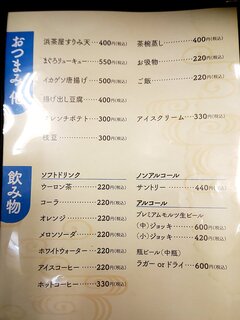 おつまみ他
浜茶屋すりみ天…400円(税込)
まぐろリューキュー…550円(税込)
イカゲソ唐揚げ…500円(税込)
揚げ出し豆腐……400円(税込)
フレンチポテト…300円(税込)
枝豆……………300円(税込)
茶椀蒸し………400円(税込)
お吸物…………220円(税込)
ご飯……………220円(税込)
アイスクリーム…330円(税込)
飲み物
ソフトドリンク
ウーロン茶………220円(税込)
コーラ……………220円(税込)
オレンジ…………220円(税込)
メロンソーダ……220円(税込)
ホワイトウォーター…220円(税込)
アイスコーヒー…220円(税込)
ホットコーヒー…330円(税込)
ノンアルコール
サントリー………440円(税込)
アルコール
プレミアムモルツ生ビール
(中)ジョッキ……600円(税込)
(小)ジョッキ……420円(税込)
瓶ビール(中瓶)
ラガー or ドライ…600円(税込)